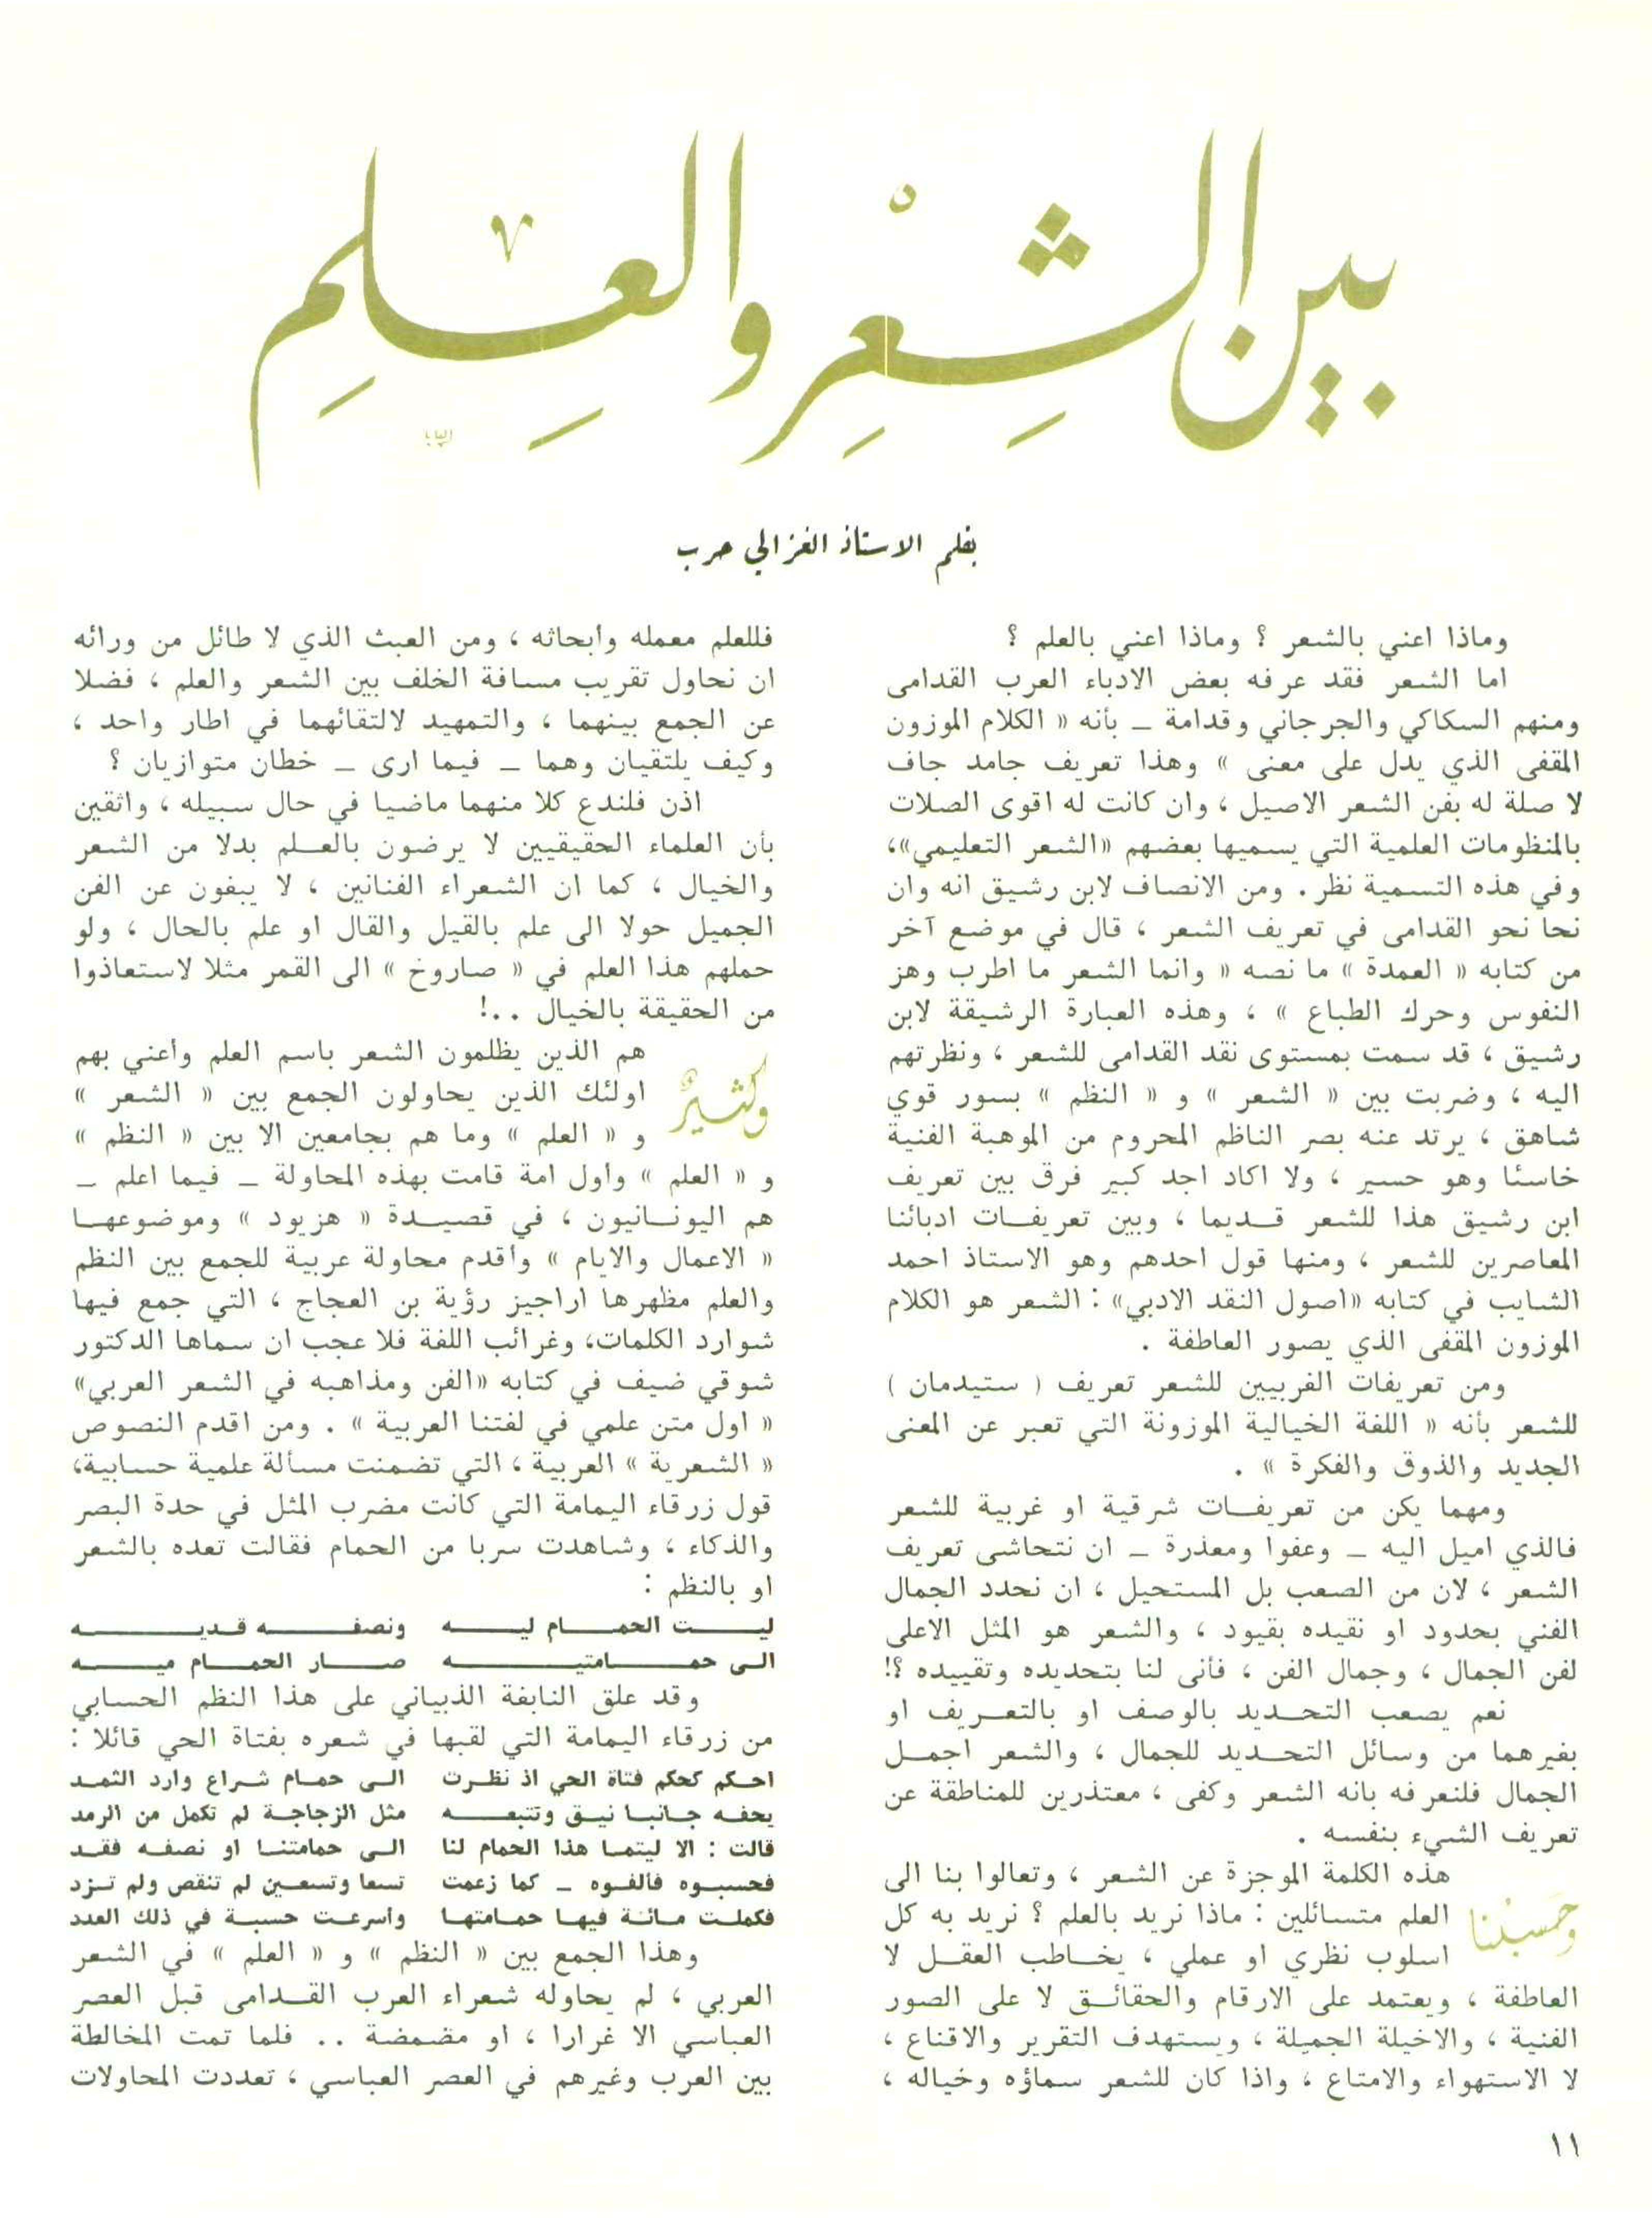 بين الشِعْرِ والعِلمِ
بقلم الاستاذ الغزالي حرب
وماذا اعني بالشعر ؟ وماذا اعني بالعلم ؟
اما الشعر فقد عرفه بعض الادباء العرب القدامى
ومنهم السكاكي والجرجاني وقدامة ــ بأنه « الكلام الموزون
المقفى الذي يدل على معنى » وهذا تعريف جامد جاف
لا صلة له بفن الشعر الاصيل ، وان كانت له اقوى الصلات
بالمنظومات العلمية التي يسميها بعضهم «الشعر التعليمي»،
وفي هذه التسمية نظر . ومن الانصاف لابن رشيق انه وان
نحا نحو القدامى في تعريف الشعر ، قال في موضع آخر
من كتابه « العمدة » ما نصه « وانما الشعر ما اطرب وهز
النفوس وحرك الطباع » ، وهذه العبارة الرشيقة لابن
رشيق ، قد سمت بمستوى نقد القدامى للشعر ، ونظرتهم
اليه ، وضربت بين « الشعر » و « النظم » بسور قوي
شاهق ، يرتد عنه بصر الناظم المحروم من الموهبة الفنية
خاسئا وهو حسير ، ولا اكاد اجد كبير فرق بين تعريف
ابن رشيق هذا للشعر قديما ، وبين تعريفات ادبائنا
المعاصرين للشعر ، ومنها قول احدهم وهو الاستاذ احمد
الشايب في كتابه «اصول النقد الادبي» : الشعر هو الكلام
الموزون المقفى الذي يصور العاطفة .
ومن تعريفات الغربيين للشعر تعريف ( ستيدمان )
للشعر بأنه « اللغة الخيالية الموزونة التي تعبر عن المعنى
الجديد والذوق والفكرة » .
ومهما يكن من تعريفات شرقية او غربية للشعر
فالذي اميل اليه ــ وعفوا ومعذرة ــ ان نتحاشى تعريف
الشعر ، لان من الصعب بل المستحيل ، ان نحدد الجمال
الفني بحدود او نقيده بقيود ، والشعر هو المثل الاعلى
لفن الجمال ، وجمال الفن ، فأنى لنا بتحديده وتقييده ؟!
نعم يصعب التحديد بالوصف او بالتعريف او
بغيرهما من وسائل التحديد للجمال ، والشعر اجمل
الجمال فلنعرفه بانه الشعر وكفى ، معتذرين للمناطقة عن
تعريف الشيء بنفسه .
وحَسبُنا هذه الكلمة الموجزة عن الشعر ، وتعالوا بنا الى
العلم متسائلين : ماذا نريد بالعلم ؟ نريد به كل
اسلوب نظري او عملي ، يخاطب العقل لا
العاطفة ، ويعتمد على الارقام والحقائق لا على الصور
الفنية ، والاخيلة الجميلة ، ويستهدف التقرير والاقناع ،
لا الاستهواء والامتاع ، واذا كان للشعر سماؤه وخياله ،
فللعلم معمله وابحاثه ، ومن العبث الذي لا طائل من ورائه
ان نحاول تقريب مسافة الخلف بين الشعر والعلم ، فضلا
عن الجمع بينهما ، والتمهيد لالتقائهما في اطار واحد ،
وكيف يلتقيان وهما ــ فيما ارى ــ خطان متوازيان ؟
اذن فلندع كلا منهما ماضيا في حال سبيله ، واثقين
بأن العلماء الحقيقيين لا يرضون بالعلم بدلا من الشعر
والخيال ، كما ان الشعراء الفنانين ، لا يبغون عن الفن
الجميل حولا الى علم بالقيل والقال او علم بالحال ، ولو
حملهم هذا العلم في « صاروخ » الى القمر مثلا لاستعاذوا
من الحقيقة بالخيال ..!
وكثيرٌ هم الذين يظلمون الشعر باسم العلم وأعني بهم
اولئك الذين يحاولون الجمع بين « الشعر »
و « العلم » وما هم بجامعين الا بين « النظم »
و « العلم » واول امة قامت بهذه المحاولة ــ فيما اعلم ــ
هم اليونانيون ، في قصيدة « هزيود » وموضوعها
« الاعمال والايام » وأقدم محاولة عربية للجمع بين النظم
والعلم مظهرها اراجيز رؤية بن العجاج ، التي جمع فيها
شوارد الكلمات، وغرائب اللغة فلا عجب ان سماها الدكتور
شوقي ضيف في كتابه «الفن ومذاهبه في الشعر العربي»
« اول متن علمي في لغتنا العربية » . ومن اقدم النصوص
« الشعرية » العربية ، التي تضمنت مسألة علمية حسابية،
قول زرقاء اليمامة التي كانت مضرب المثل في حدة البصر
والذكاء ، وشاهدت سربا من الحمام فقالت تعده بالشعر
او بالنظم :
ليت الحمام ليه ونصفه قديه
الى حمامتيه صار الحمام ميه
وقد علق النابغة الذبياني على هذا النظم الحسابي
من زرقاء اليمامة التي لقبها في شعره بفتاة الحي قائلا :
احكم كحكم فتاة الحي اذ نظرت الى حمام شراع وارد الثمد
يحفه جانبا نيق وتتبعه مثل الزجاجة لم تكمل من الرمد
قالت : الا ليتما هذا الحمام لنا الى حمامتنا او نصفه فقد
فحسبوه فالفوه ــ كما زعمت تسعا وتسعين لم تنقص ولم تزد
فكملت مائة فيها حمامتها واسرعت حسبة في ذلك العدد
وهذا الجمع بين « النظم » و « العلم » في الشعر
العربي ، لم يحاوله شعراء العرب القدامى قبل العصر
العباسي الا غرارا ، او مضمضة .. فلما تمت المخالطة
بين العرب وغيرهم في العصر العباسي ، تعددت المحاولات
١١